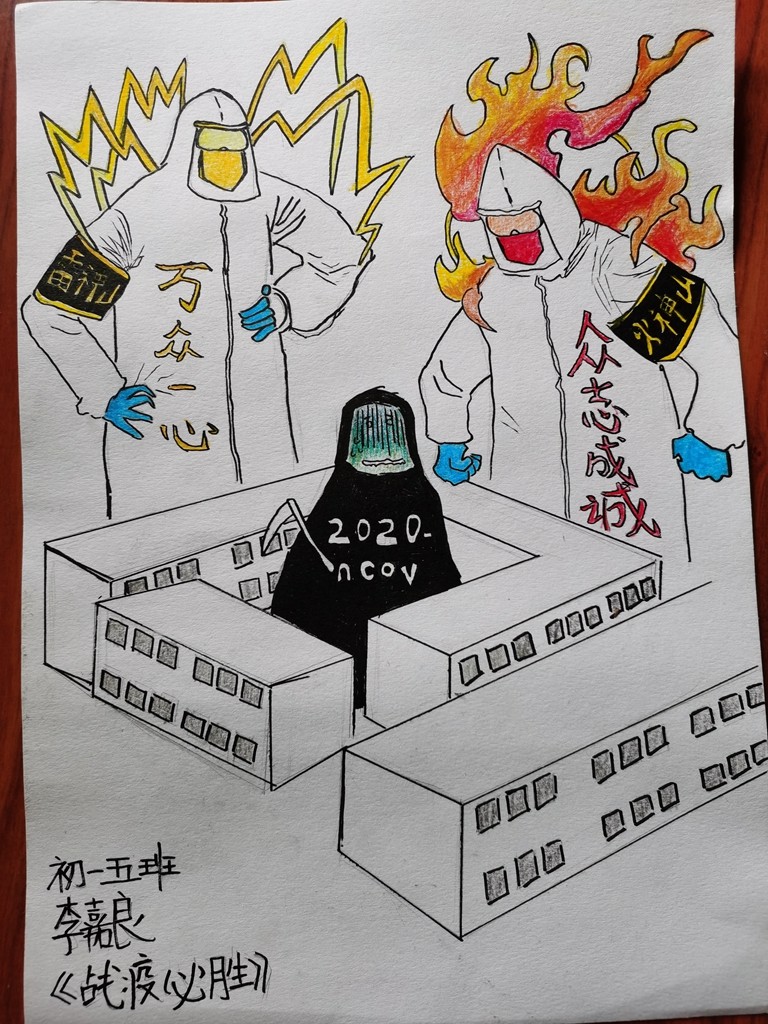 雷神山
万众一心
火神山
众志成诚
2020-
ncov
初一五班
李嘉良
《战疫必胜》